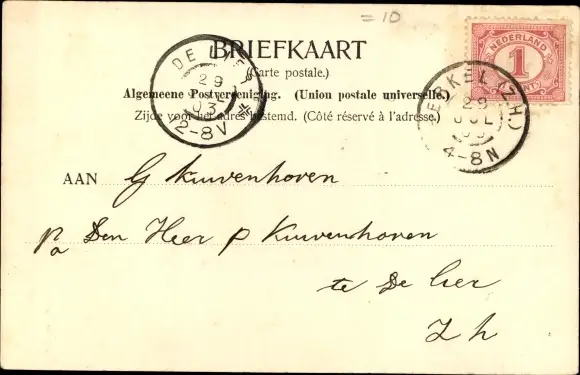 = 10
BRIEFKAART
(Carte postale.)
Algemeene Postvereeniging. (Union postale universelle)
Zijde voor het adres bestemd. (Côté réservé à l'adresse.)
NEDERLAND
1
CENT
DE LIER
29
03
2-8V
BERKEL (Z.H.)
29
JUL
03
4-8N
AAN G Kouwenhoven
p/a Den Heer P Kouwenhoven
te De Lier
Z h